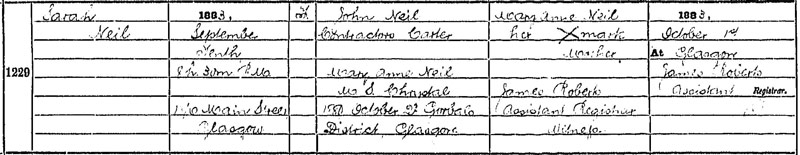 1229
Sarah
Neil
1883,
September
Tenth
8 h. 30m P.M.
Main Street
Glasgow
F
John Neil
Contractors Carter
Mary Anne Neil
M.S.
1880 October Gorbals
District, Glasgow
Mary Anne Neil
her X mark
Mother
James Roberts
Assistant Registrar
Witness
1883.
October 1st
At Glasgow
James Roberts
Assistant Registrar.